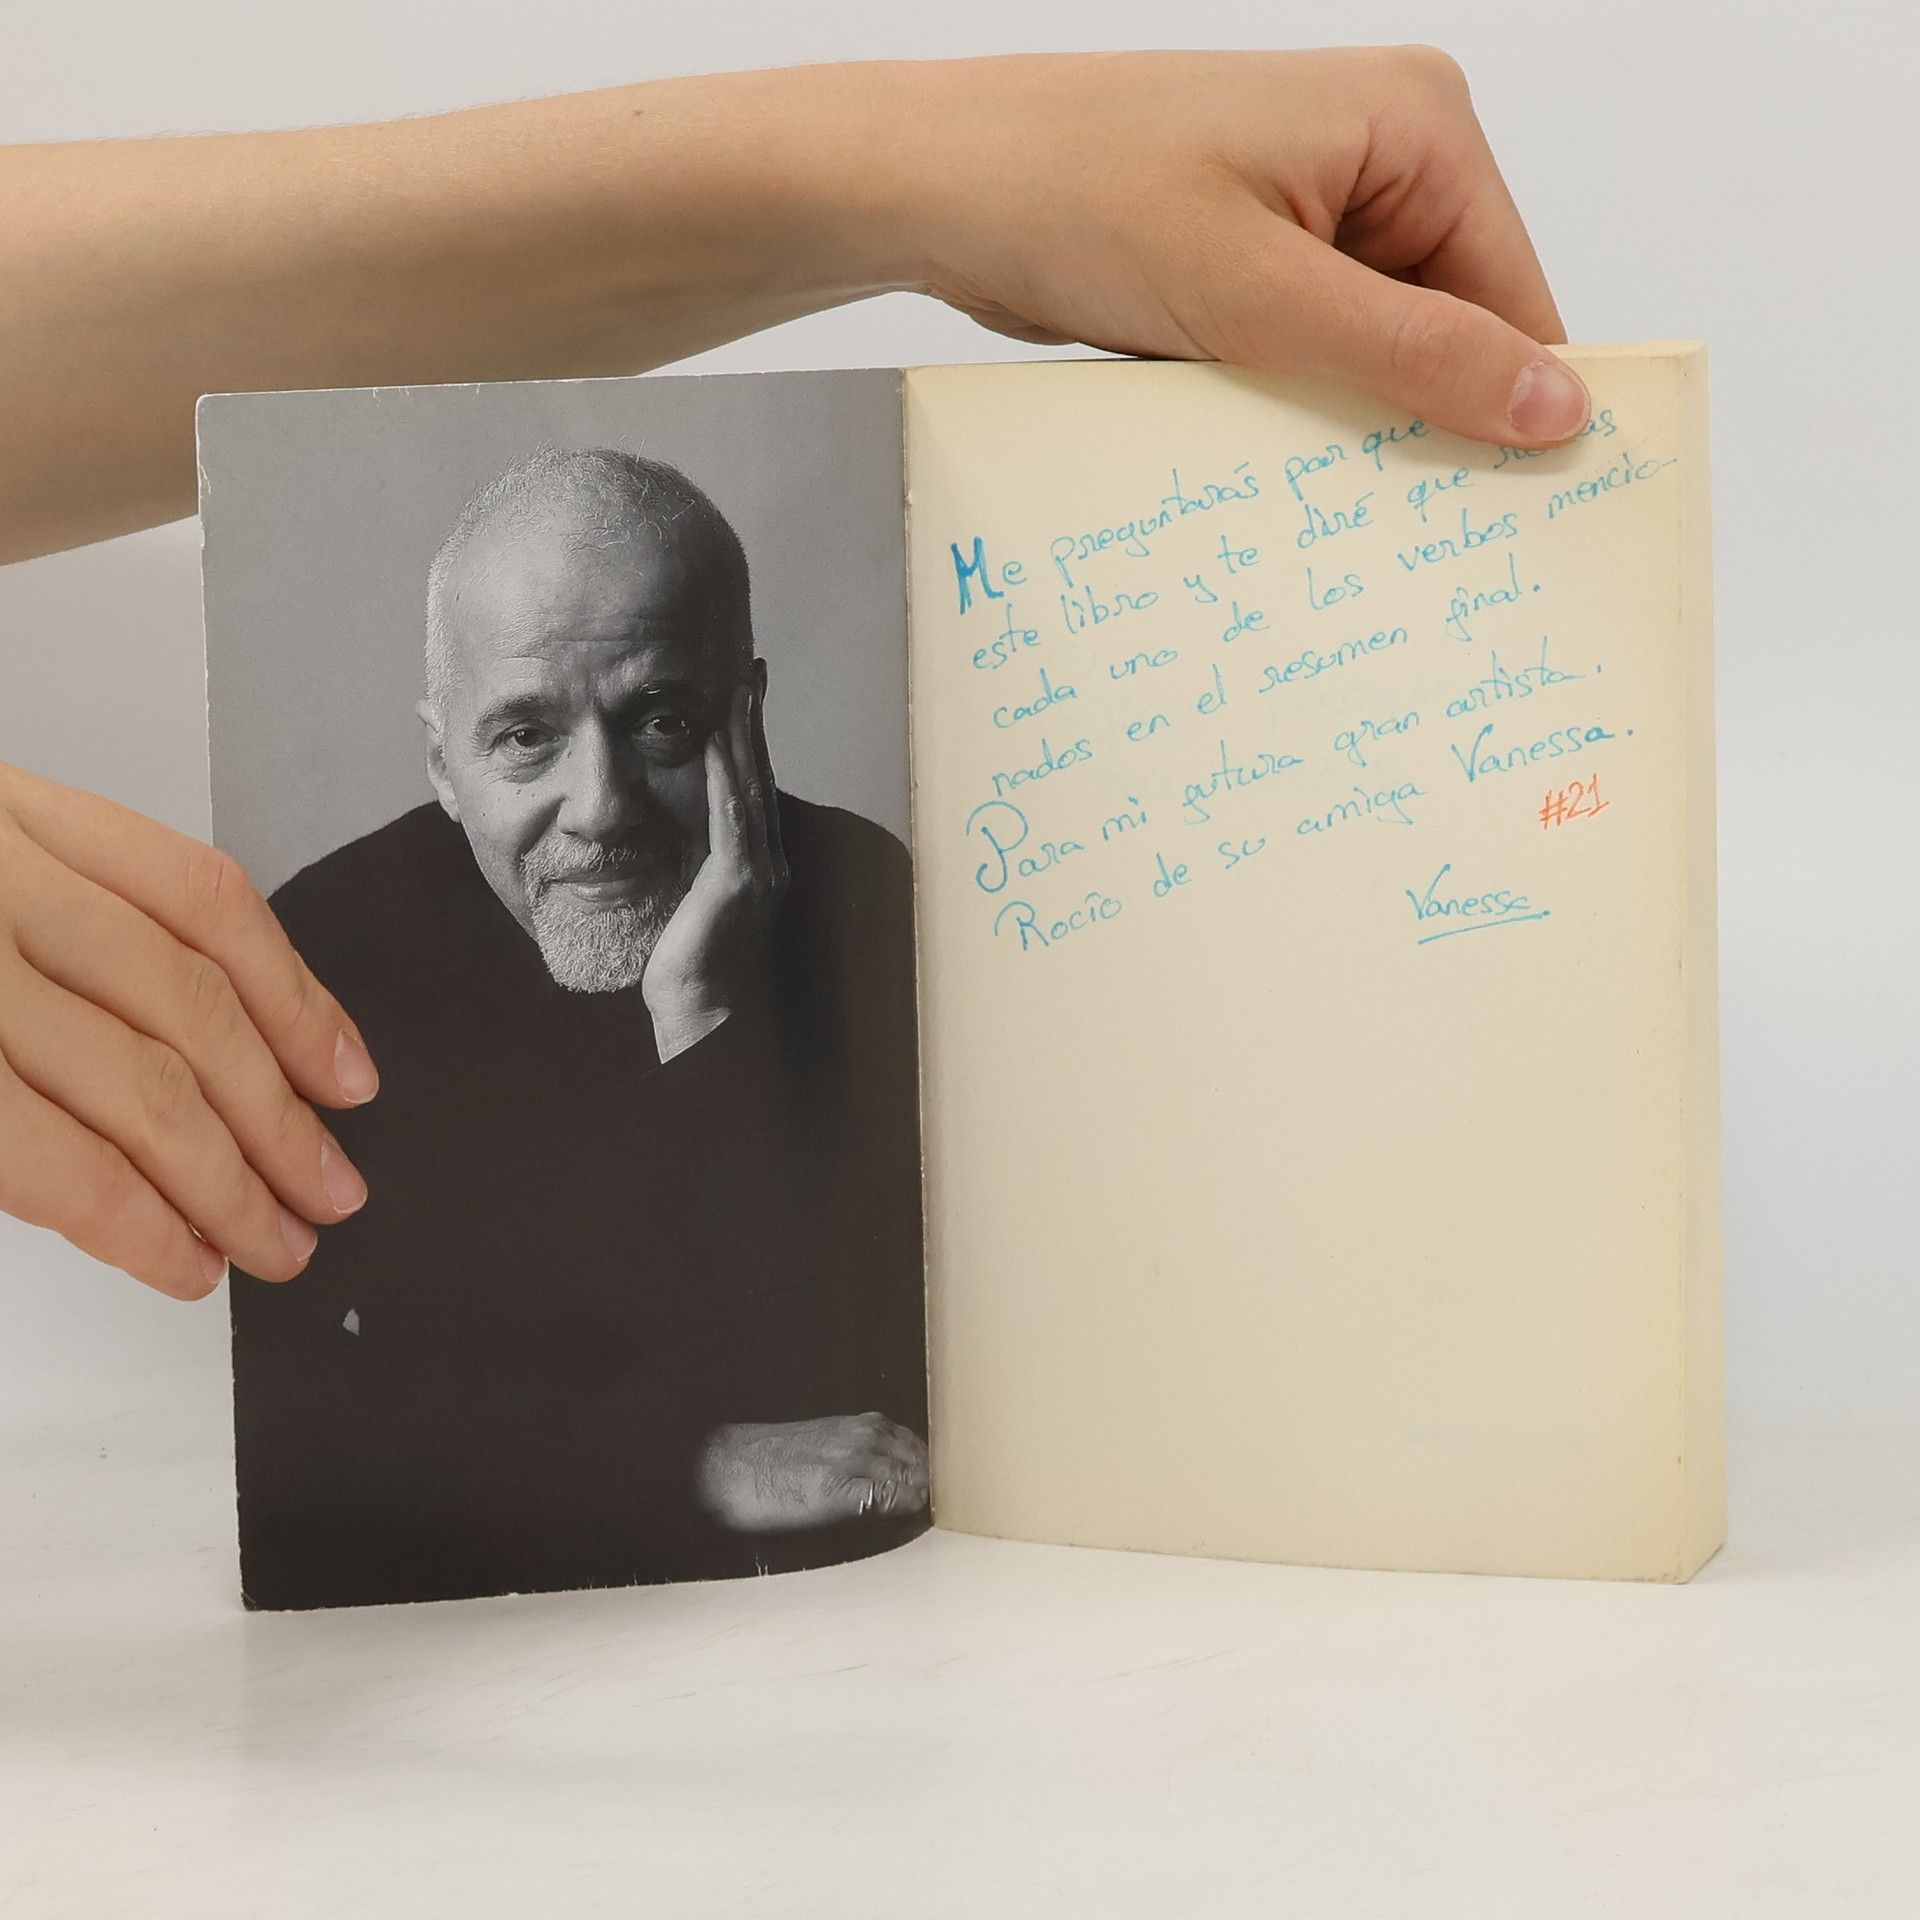 Me preguntarás por que
este libro y te diré que
cada uno de los verbos mencio-
nados en el resumen final.
Para mi futura gran artista.
Rocío de su amiga Vanessa.
#21
Vanessa.